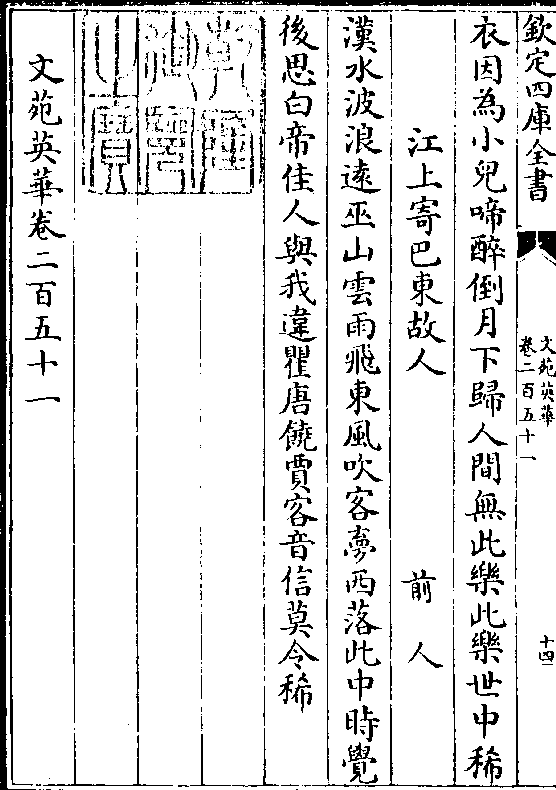 欽定四庫全書
文苑英華
卷二百五十一
十四
衣因為小兒啼醉倒月下歸人間無此樂此樂世中稀
江上寄巴東故人 前人
漢水波浪逺巫山雲雨飛東風吹客夢西落此中時覺
後思白帝佳人與我違瞿唐饒賈客音信莫令稀
乾隆御覽之寶
文苑英華卷二百五十一